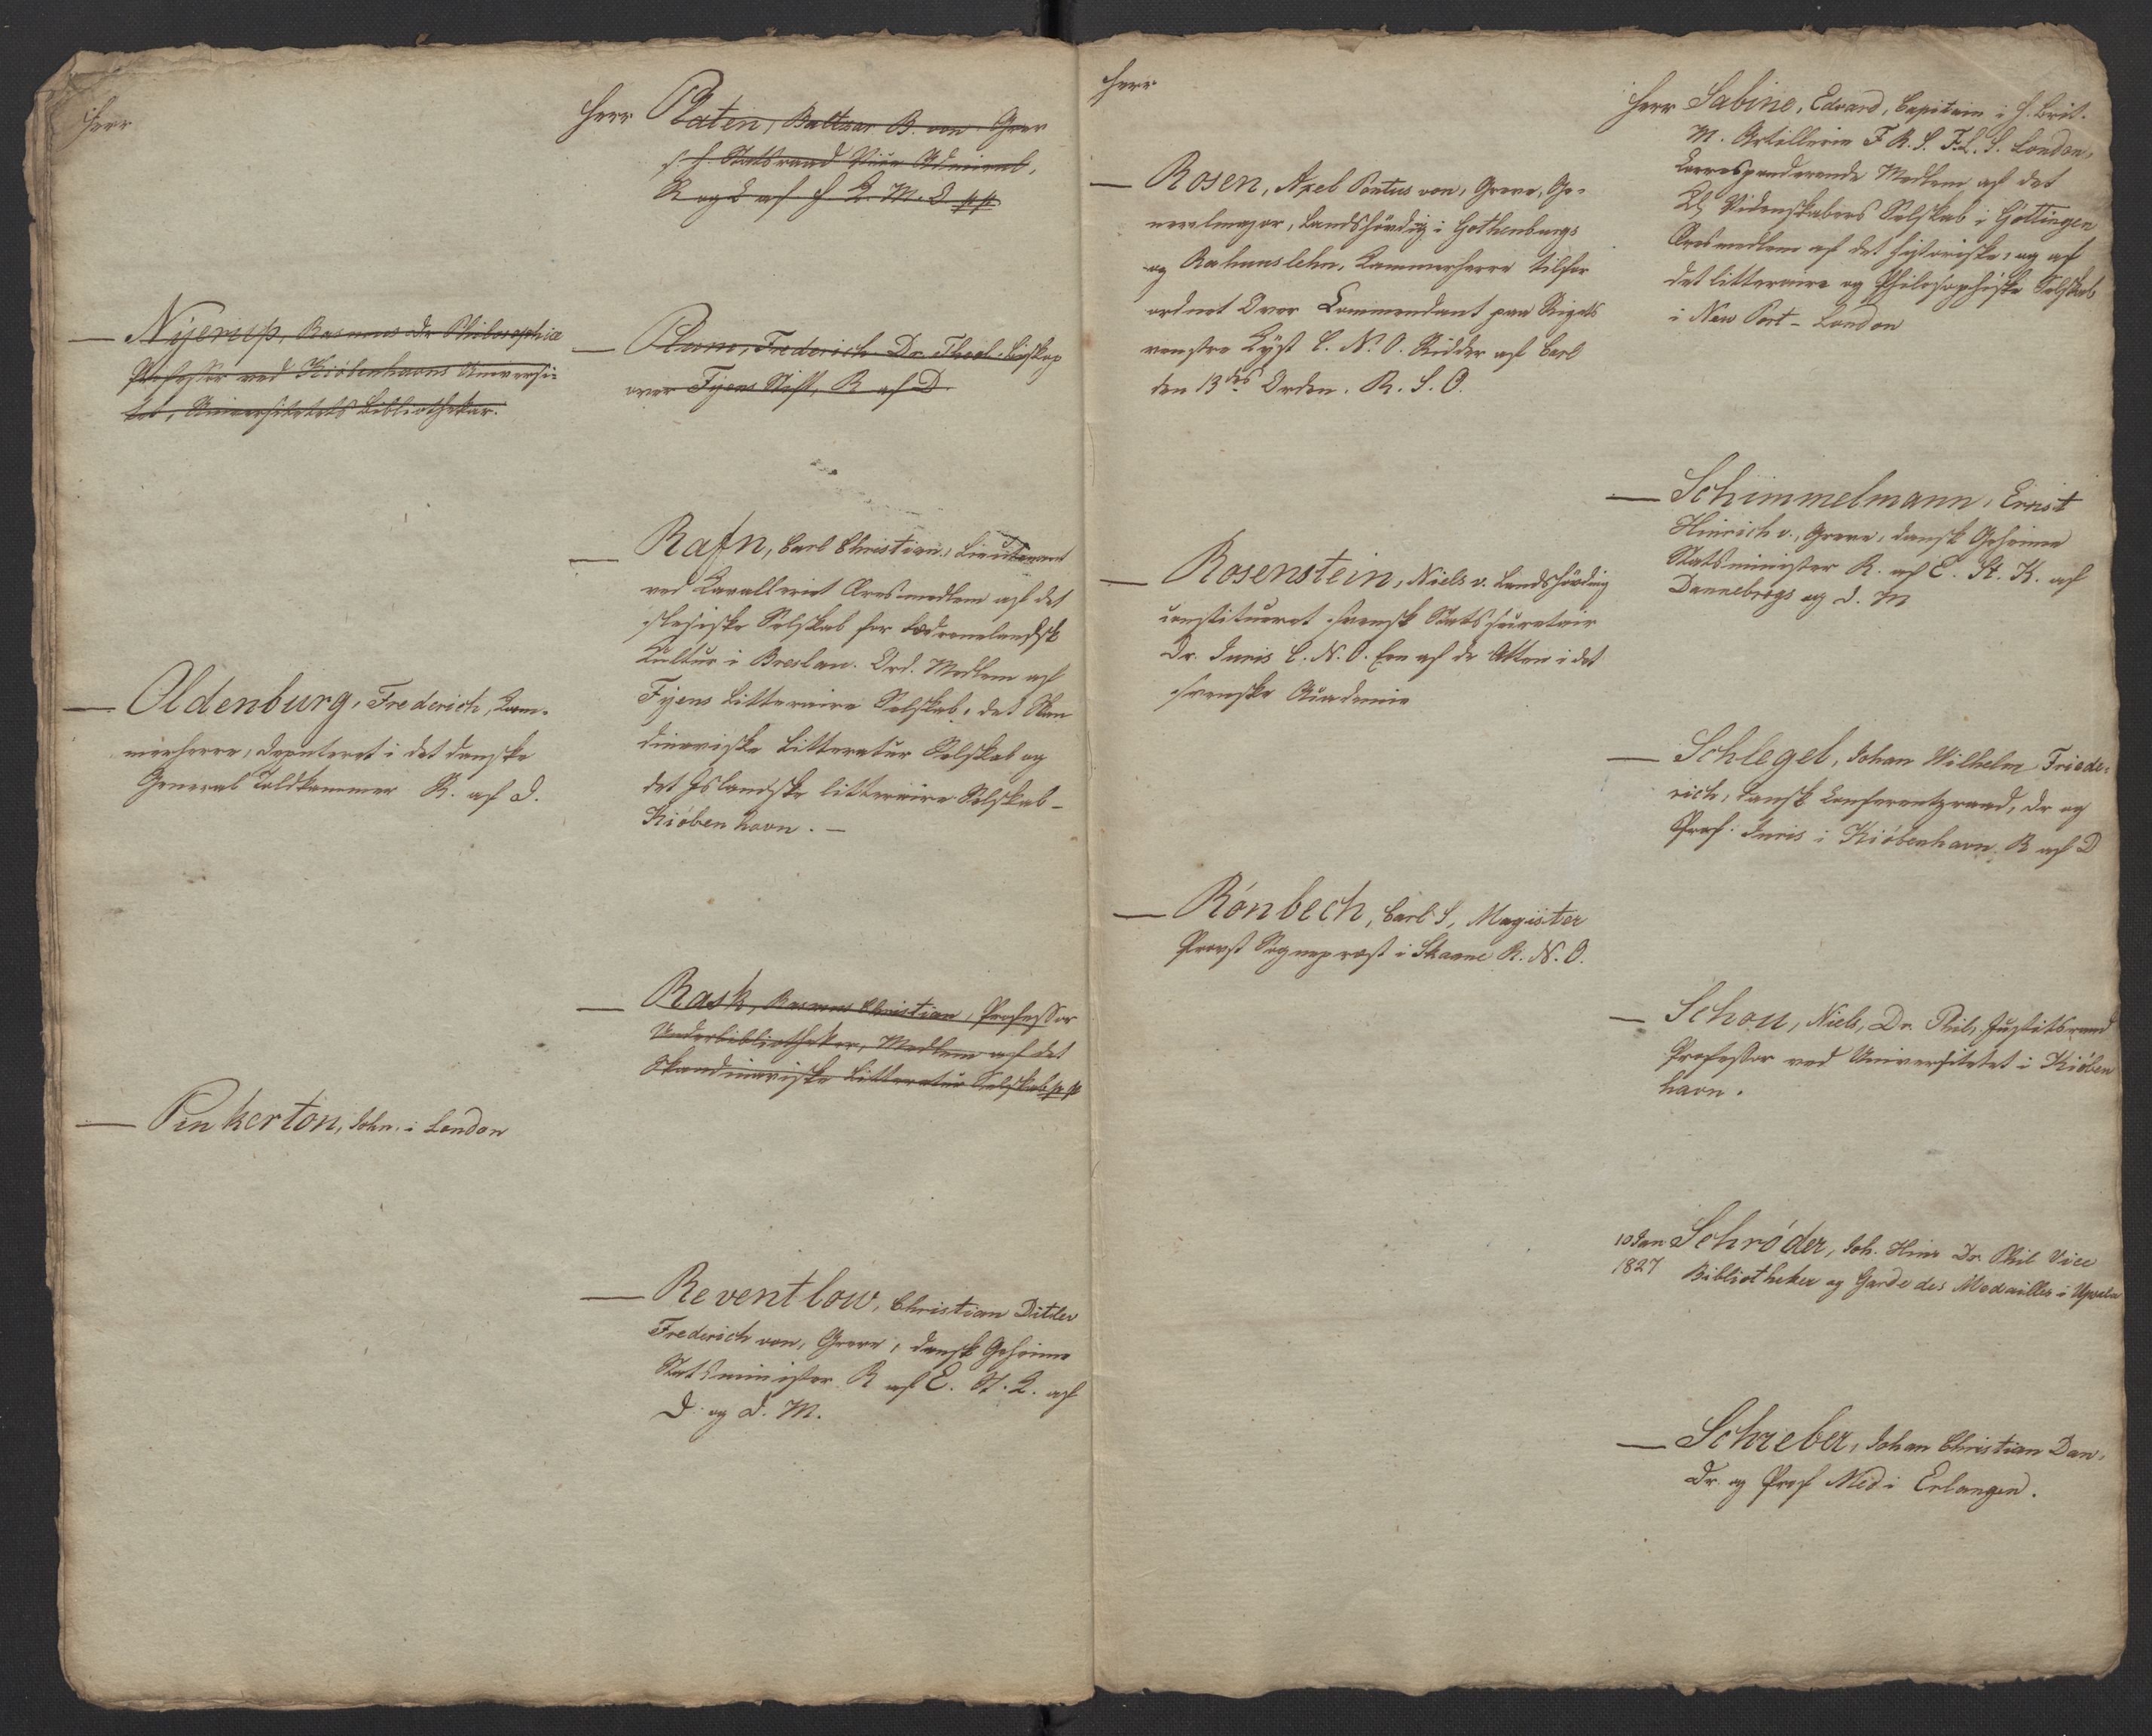 Herr
— Nÿerup, Rasmus Dr. Philosophiæ
Professor ved Kiöbenhavns Universi-
tet, Universitetets Bibliothekar.
— Oldenburg, Frederich, Kam-
merherre, Deputeret i det danske
General Toldkammer R. af D.
— Pinkerton, John, i London
Herr Platen, Baltzar B. von Grev
s. H. Statsraad Vice Admiral,
R og C af H. K. M. O pp
— Plum, Frederich Dr. Theol. Biskop
over Fyens Stift, R af D.
— Rafn, Carl Christian, Lieutenant
ved Kavalleriet Æresmedlem af det
slesiske Selskab for fædrenelandsk
Kultur i Breslau. Ord. Medlem af
Fyens Litteraire Selskab, det Skan
dinaviske Litteratur Selskab og
det Islandske litteraire Selskab –
Kiöbenhavn. –
— Rask, Rasmus Christian, Professor
Underbibliothekar, Medlem af det
Skandinaviske Litteratur Selskab pp
— Reventlow, Christian Ditlev
Frederich von, Greve, dansk Geheime
Statsminister R af E. St. K. af
D. og D. M.
Herr
— Rosen, Axel Pontus von, Greve, Ge-
neralmajor, Landshövding i Gothenburgs
og Bahuuslehn, Kammerherre tilfor
ordnet Över Commendant paa Rigets
venstre Kyst C. N. O. Ridder af Carl
den 13des Orden. R. S. O.
— Rosenstein, Niels v. Landshövding
constitueret svensk Statssecretair
Dr. Juris C. N. O. Een af de Atten i det
svenske Academie
— Rönbech, Carl S, Magister
Provst Sognepræst i Skaane R. N. O.
Herr Sabine, Edvard, Capitain i H. Brit.
M. Artillerie F. R. S. F. L. S. London,
Correspanderende Medlem af det
Kl. Videnskabers Selskab i Göttingen
Æresmedlem af det historiske, og af
det litteraire og Philosophiske Selskab
i New Port – London
— Schimmelmann, Ernst
Hinrich v., Greve, dansk Geheime
Statsminister R. af E. St. K. af
Dannebrogs og D. M
— Schlegel, Johan Wilhelm Friede-
rich, dansk Conferentzraad, Dr og
Prof. Juris i Kiöbenhavn. R af D
— Schou, Niels, Dr. Phil. Justitsraad
Professor ved Universitetet i Kiöben
havn.
10 Jan Schröder, Joh. Hinr Dr. Phil Vice
1827 Bibliotheker og Garde des Medailles i Upsala
— Schreber, Johan Christian Dan.
Dr. og Prof Med i Erlangen.